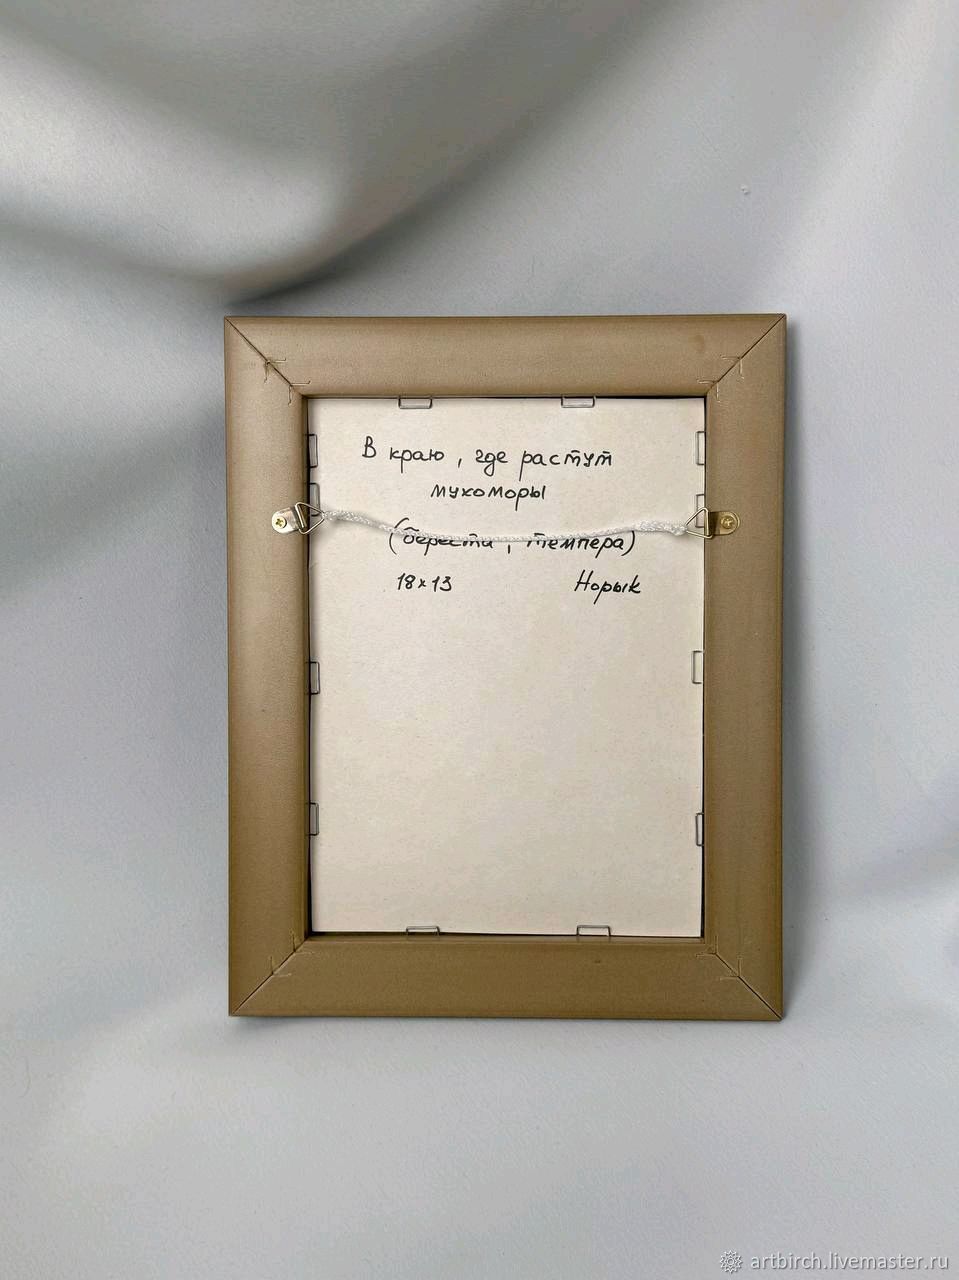 В краю, где растут
мухоморы
(береста, темпера)
18х13 Норык
artbirch.livemaster.ru